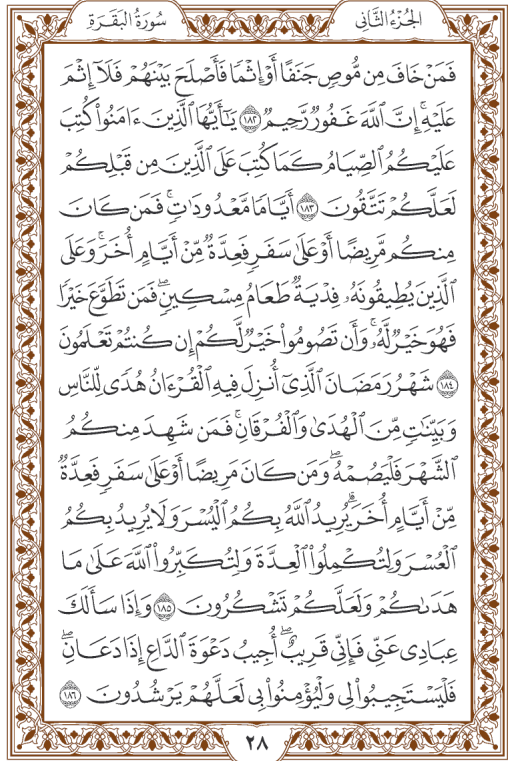 الجزء الثاني
سورة البقرة
فَمَنْ خَافَ مِن مُّوصٍ جَنَفًا أَوْ إِثْمًا فَأَصْلَحَ بَيْنَهُمْ فَلَآ إِثْمَ
عَلَيْهِ ۚ إِنَّ ٱللَّهَ غَفُورٌ رَّحِيمٌ ١٨٢ يَٰٓأَيُّهَا ٱلَّذِينَ ءَامَنُوا۟ كُتِبَ
عَلَيْكُمُ ٱلصِّيَامُ كَمَا كُتِبَ عَلَى ٱلَّذِينَ مِن قَبْلِكُمْ
لَعَلَّكُمْ تَتَّقُونَ ١٨٣ أَيَّامًا مَّعْدُودَٰتٍ ۚ فَمَن كَانَ
مِنكُم مَّرِيضًا أَوْ عَلَىٰ سَفَرٍ فَعِدَّةٌ مِّنْ أَيَّامٍ أُخَرَ ۚ وَعَلَى
ٱلَّذِينَ يُطِيقُونَهُۥ فِدْيَةٌ طَعَامُ مِسْكِينٍ ۖ فَمَن تَطَوَّعَ خَيْرًا
فَهُوَ خَيْرٌ لَّهُۥ ۚ وَأَن تَصُومُوا۟ خَيْرٌ لَّكُمْ إِن كُنتُمْ تَعْلَمُونَ
١٨٤ شَهْرُ رَمَضَانَ ٱلَّذِىٓ أُنزِلَ فِيهِ ٱلْقُرْءَانُ هُدًى لِّلنَّاسِ
وَبَيِّنَٰتٍ مِّنَ ٱلْهُدَىٰ وَٱلْفُرْقَانِ ۚ فَمَن شَهِدَ مِنكُمُ
ٱلشَّهْرَ فَلْيَصُمْهُ ۖ وَمَن كَانَ مَرِيضًا أَوْ عَلَىٰ سَفَرٍ فَعِدَّةٌ
مِّنْ أَيَّامٍ أُخَرَ ۗ يُرِيدُ ٱللَّهُ بِكُمُ ٱلْيُسْرَ وَلَا يُرِيدُ بِكُمُ
ٱلْعُسْرَ وَلِتُكْمِلُوا۟ ٱلْعِدَّةَ وَلِتُكَبِّرُوا۟ ٱللَّهَ عَلَىٰ مَا
هَدَىٰكُمْ وَلَعَلَّكُمْ تَشْكُرُونَ ١٨٥ وَإِذَا سَأَلَكَ
عِبَادِى عَنِّى فَإِنِّى قَرِيبٌ ۖ أُجِيبُ دَعْوَةَ ٱلدَّاعِ إِذَا دَعَانِ ۖ
فَلْيَسْتَجِيبُوا۟ لِى وَلْيُؤْمِنُوا۟ بِى لَعَلَّهُمْ يَرْشُدُونَ ١٨٦
٢٨